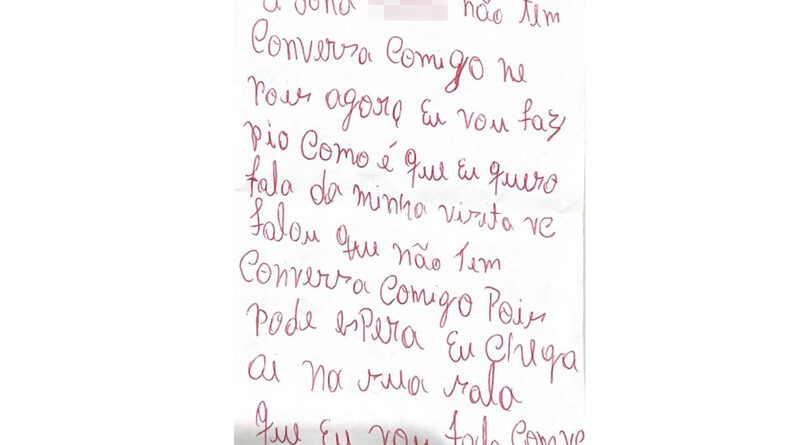 a Dona não tem
Conversa Comigo ne
Pois agora Eu vou faz
pio Como é que Eu quero
fala da minha visita vc
falou que não Tem
Conversa Comigo Pois
pode esPera Eu Chega
ai na sua sala
que Eu vou fala Com vc